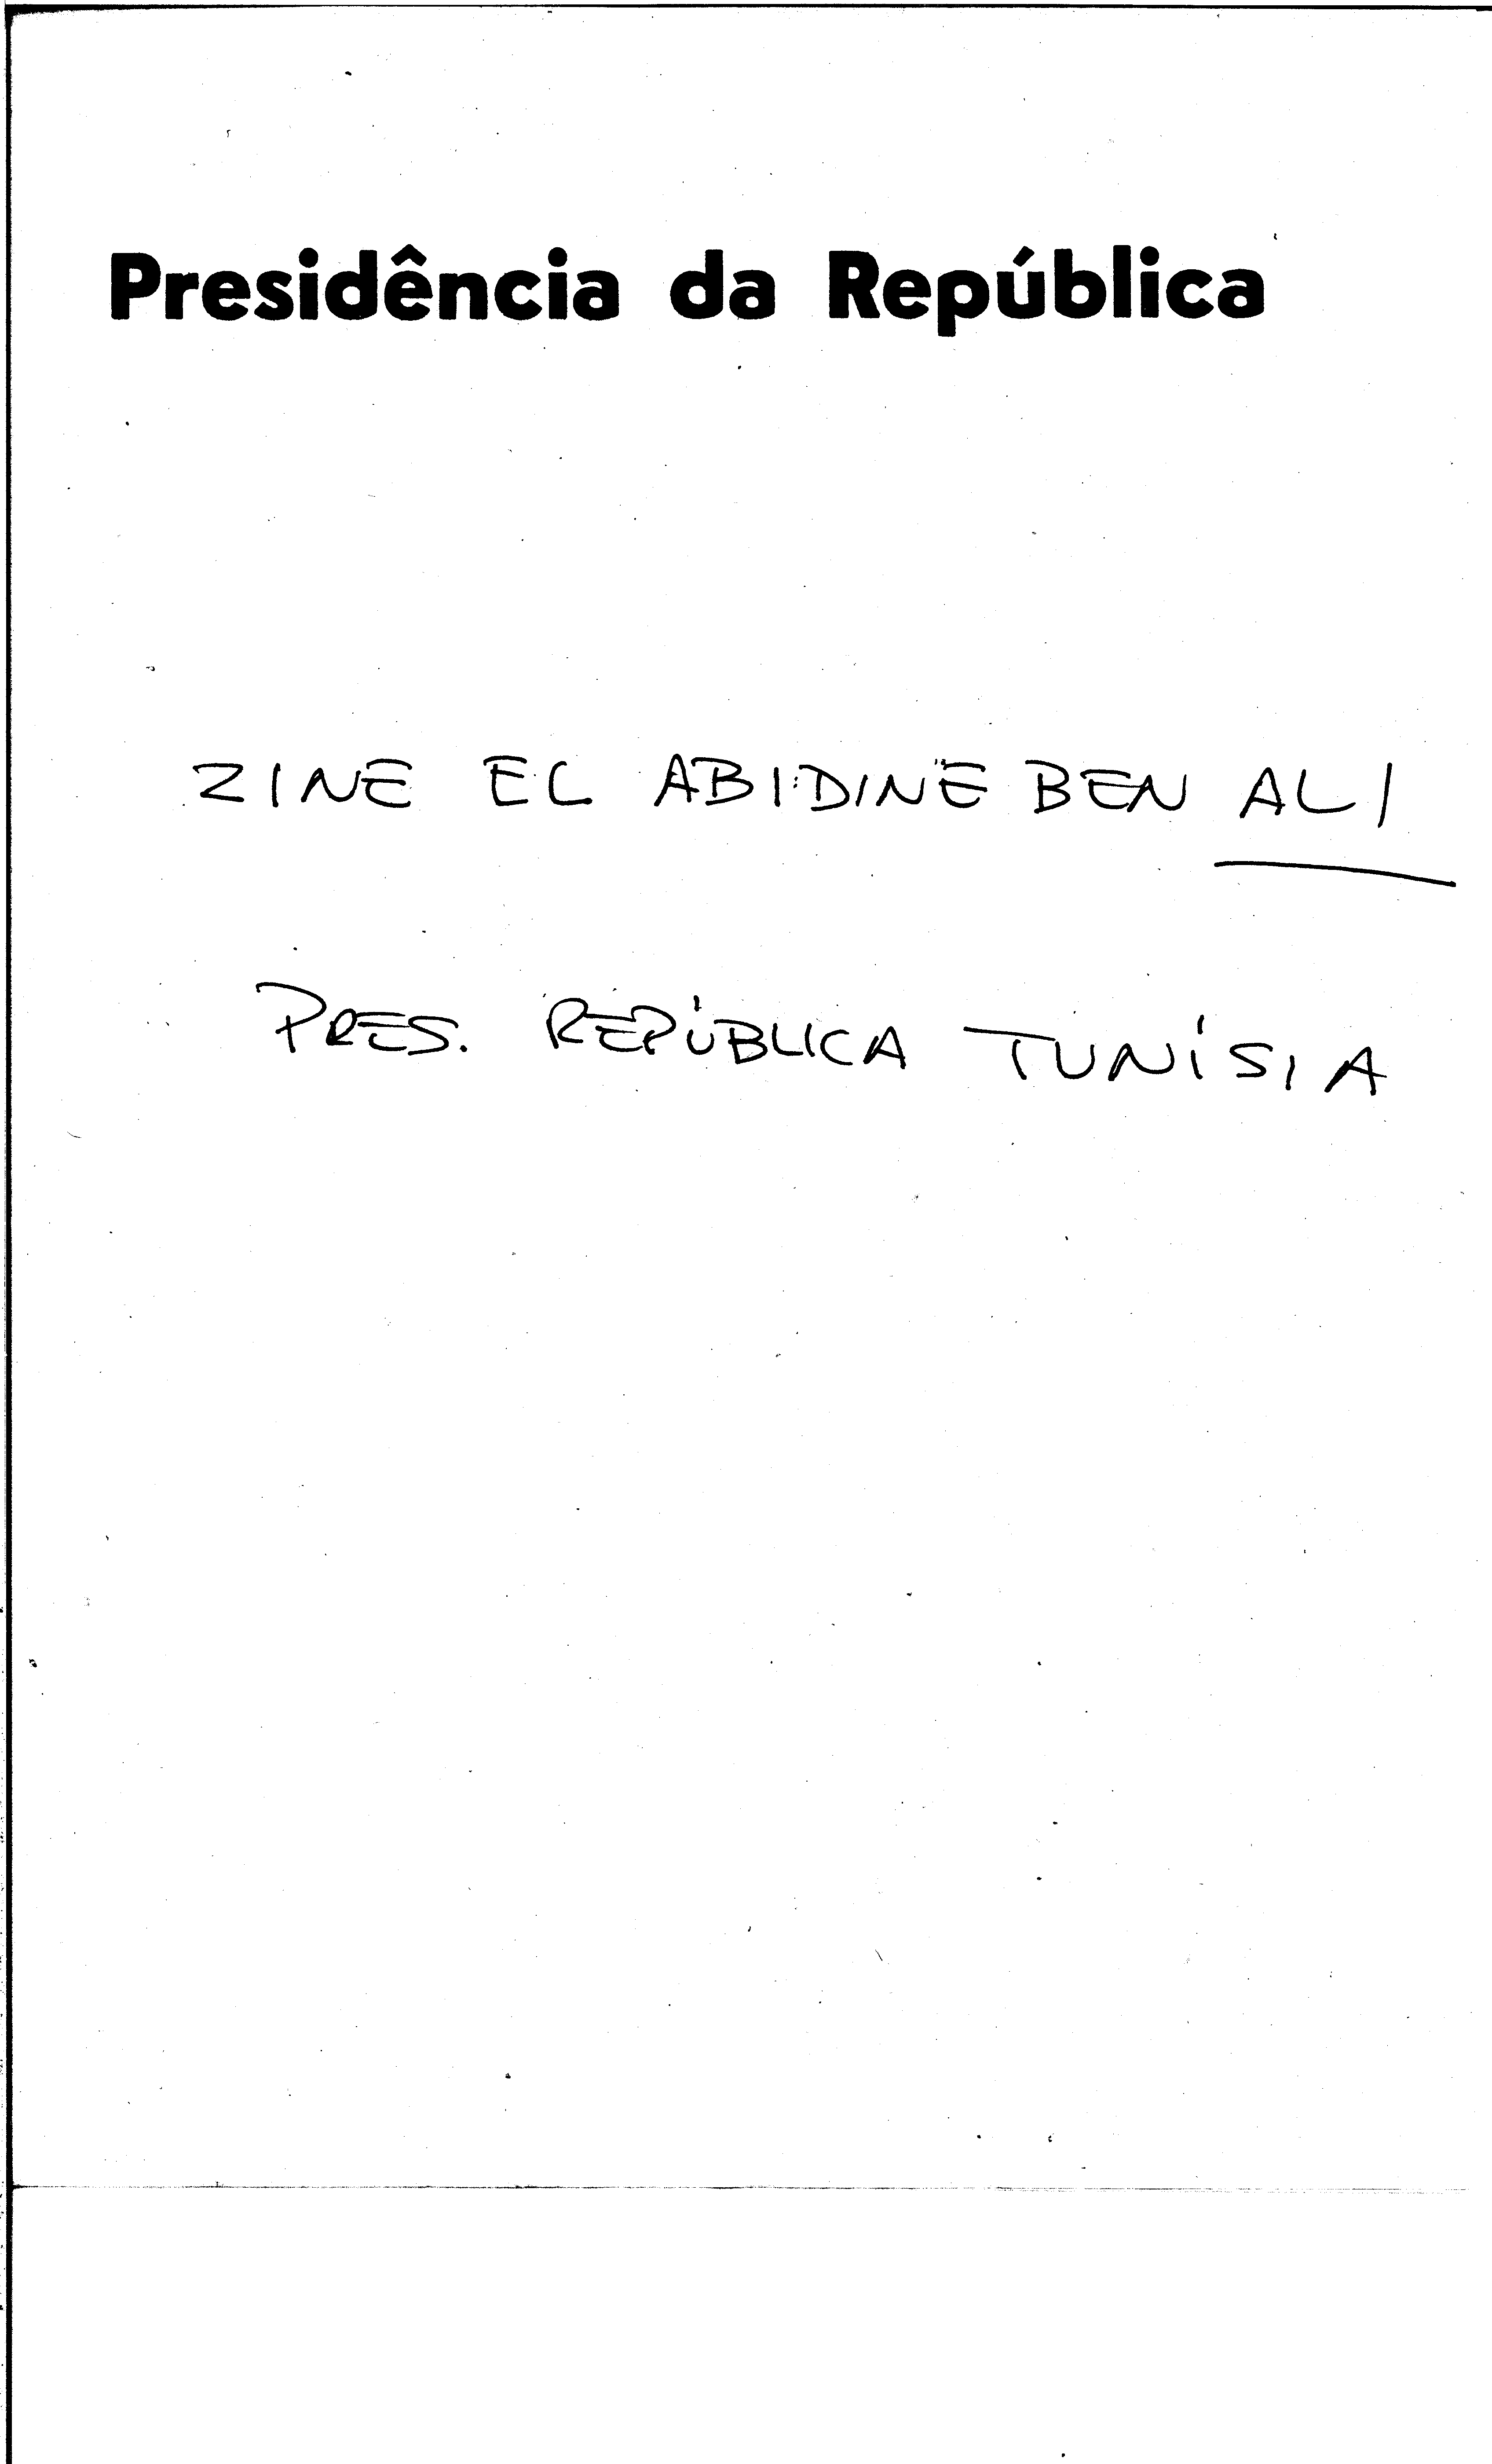 Presidência da República
ZINE EL ABIDINE BEN ALI
PRES. REPÚBLICA TUNÍSIA